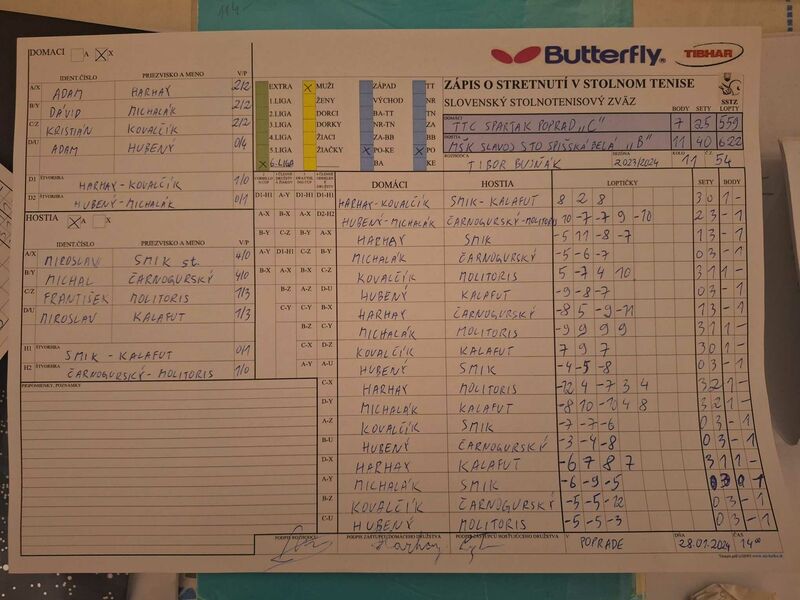 114
DOMACI A X
IDENT.ČÍSLO PRIEZVISKO A MENO V/P
A/X ADAM HARHAY 2/2
B/Y DÁVID MICHALÁK 2/2
C/Z KRISTIÁN KOVALČÍK 2/2
D/U ADAM HUBENÝ 0/4
D1 HARHAY-KOVALČÍK 1/0
D2 HUBENÝ-MICHALÁK 0/1
HOSTIA A X
IDENT.ČÍSLO PRIEZVISKO A MENO V/P
A/X MIROSLAV SMIK st. 4/0
B/Y MICHAL ČARNOGURSKÝ 4/0
C/Z FRANTIŠEK MOLITORIS 1/3
D/U MIROSLAV KALAFUT 1/3
H1 SMIK - KALAFUT 0/1
H2 ČARNOGURSKÝ-MOLITORIS 1/0
PRIPOMIENKY, POZNÁMKY
EXTRA X MUŽI ZÁPAD TT
1.LIGA ŽENY VÝCHOD NR
2.LIGA DORCI BA-TT TN
3.LIGA DORKY NR-TN ZA
4.LIGA ŽIACI ZA-BB BB
5.LIGA ŽIAČKY X PO-KE X PO
X 6.LIGA BA KE
Butterfly TIBHAR
ZÁPIS O STRETNUTÍ V STOLNOM TENISE
SLOVENSKÝ STOLNOTENISOVÝ ZVÄZ BODY SETY LOPTY
SSTZ
DOMÁCI TTC SPARTAK POPRAD „C" 7 25 559
HOSTIA MŠK SLAVOJ STO SPIŠSKÁ BELÁ „B" 11 40 622
ROZHODCA TIBOR BUJŇÁK SEZÓNA 2023/2024 KOLO 11 Č.Z. 54
DOMÁCI HOSTIA LOPTIČKY SETY BODY
HARHAY-KOVALČÍK SMIK-KALAFUT 8 2 8 3 0 1 -
HUBENÝ-MICHALÁK ČARNOGURSKÝ-MOLITORIS 10 -7 -7 9 -10 2 3 - 1
HARHAY SMIK -5 11 -8 -7 1 3 - 1
MICHALÁK ČARNOGURSKÝ -5 -6 -7 0 3 - 1
KOVALČÍK MOLITORIS 5 -7 4 10 3 1 1 -
HUBENÝ KALAFUT -9 -8 -7 0 3 - 1
HARHAY ČARNOGURSKÝ -8 5 -9 -11 1 3 - 1
MICHALÁK MOLITORIS -9 9 9 9 3 1 1 -
KOVALČÍK KALAFUT 7 9 7 3 0 1 -
HUBENÝ SMIK -4 -5 -8 0 3 - 1
C-X HARHAY MOLITORIS -12 4 -7 3 4 3 2 1 -
D-Y MICHALÁK KALAFUT -8 10 -10 4 8 3 2 1 -
A-Z KOVALČÍK SMIK -7 -7 -6 0 3 - 1
B-U HUBENÝ ČARNOGURSKÝ -3 -4 -8 0 3 - 1
D-X HARHAY KALAFUT -6 7 8 7 3 1 1 -
A-Y MICHALÁK SMIK -6 -9 -5 0 3 0 1
B-Z KOVALČÍK ČARNOGURSKÝ -5 -5 -12 0 3 - 1
C-U HUBENÝ MOLITORIS -5 -5 -3 0 3 - 1
PODPIS ROZHODCU PODPIS ZÁSTUPCU DOMÁCEHO DRUŽSTVA Harhay PODPIS ZÁSTUPCU HOSŤUJÚCEHO DRUŽSTVA V POPRADE DŇA 28.01.2024 ČAS 14 00